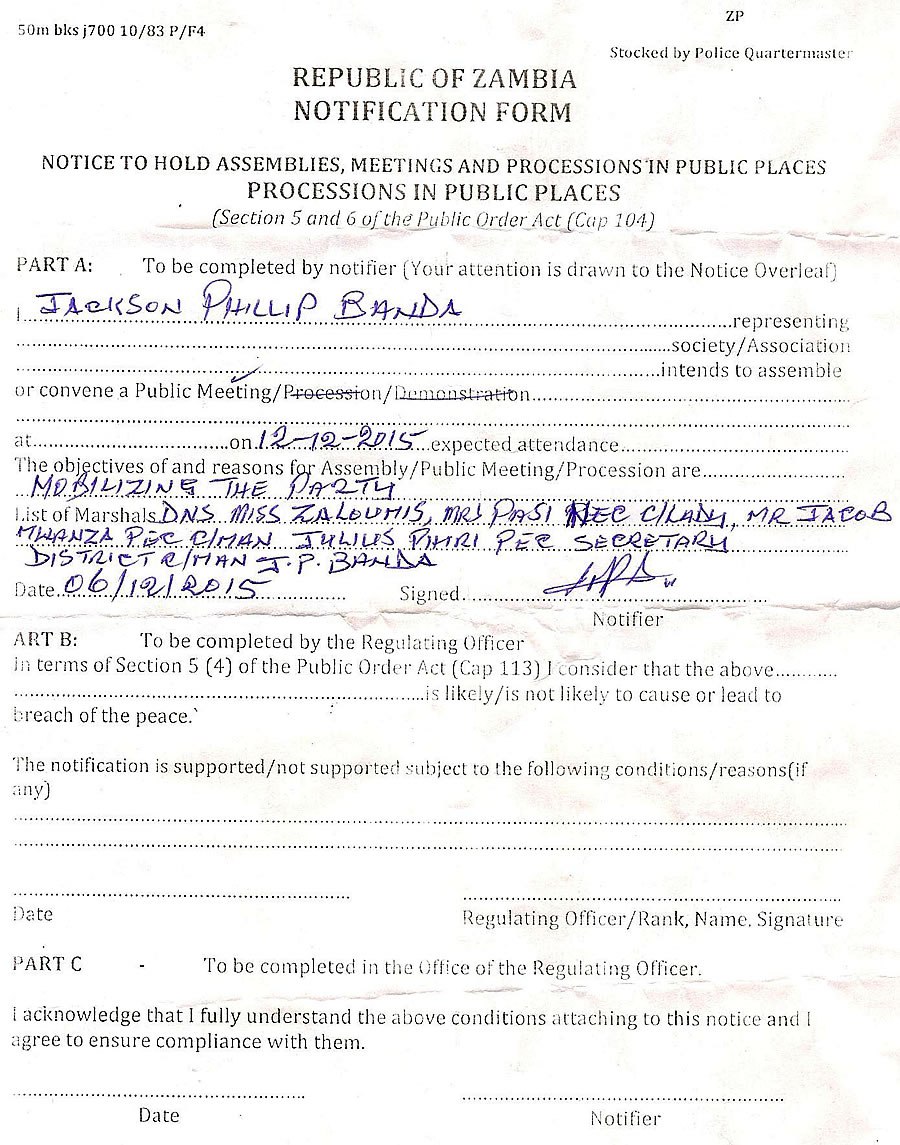 50m bks j700 10/83 P/F4
ZP
Stocked by Police Quartermaster
REPUBLIC OF ZAMBIA
NOTIFICATION FORM
NOTICE TO HOLD ASSEMBLIES, MEETINGS AND PROCESSIONS IN PUBLIC PLACES
PROCESSIONS IN PUBLIC PLACES
(Section 5 and 6 of the Public Order Act (Cap 104)
PART A: To be completed by notifier (Your attention is drawn to the Notice Overleaf)
I JACKSON PHILLIP BANDA representing
society/Association
intends to assemble
or convene a Public Meeting/Procession/Demonstration
at on 12-12-2015 expected attendance
The objectives of and reasons for Assembly/Public Meeting/Procession are
MOBILIZING THE PARTY
List of Marshals DNS MISS ZALOUMIS, MRS PASI NEC C/LADY, MR JACOB
MWANZA PEC C/MAN JULIUS PHIRI PEC SECRETARY
DISTRICT C/MAN J.P. BANDA
Date 06/12/2015 Signed
Notifier
ART B: To be completed by the Regulating Officer
in terms of Section 5 (4) of the Public Order Act (Cap 113) I consider that the above
is likely/is not likely to cause or lead to
breach of the peace.`
The notification is supported/not supported subject to the following conditions/reasons(if
any)
Date
Regulating Officer/Rank, Name, Signature
PART C - To be completed in the Office of the Regulating Officer.
I acknowledge that I fully understand the above conditions attaching to this notice and I
agree to ensure compliance with them.
Date
Notifier